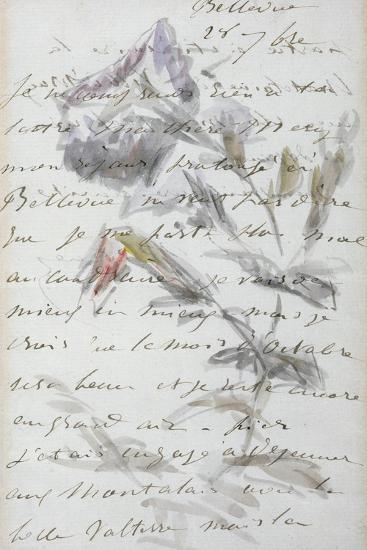 Bellevue
28 7bre
Je
lettre ma chère Méry
mon séjour prolongé ici
Bellevue ne veut pas dire
que je me porte plus mal
au contraire je vais de
mieux en mieux mais je
crois que le mois d'Octobre
sera beau et je reste encore
au grand air - hier
j'etais engagé à dejeuner
aux Montalais avec la
belle Valtesse mais la